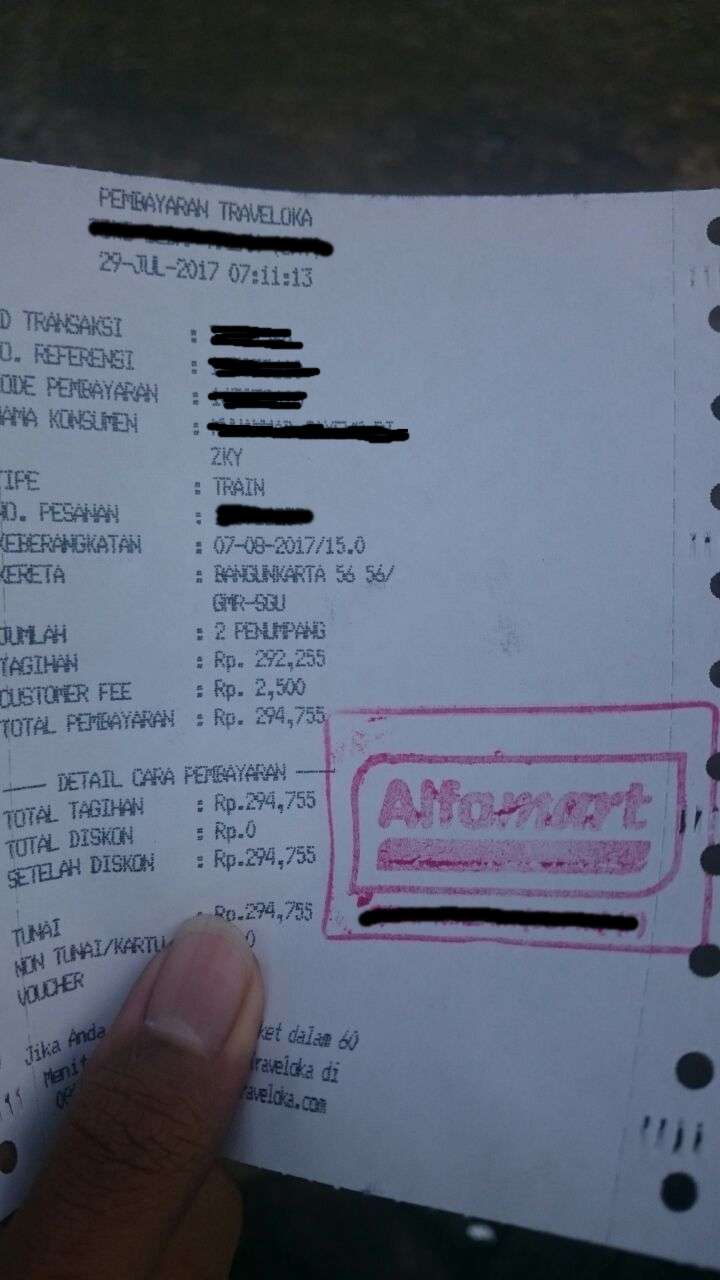 PEMBAYARAN TRAVELOKA
29-JUL-2017 07:11:13
D TRANSAKSI :
O. REFERENSI :
ODE PEMBAYARAN :
AMA KONSUMEN :
ZKY
TIPE : TRAIN
NO. PESANAN :
KEBERANGKATAN : 07-08-2017/15.0
KERETA : BANGUNKARTA 56 56/
GMR-SGU
JUMLAH : 2 PENUMPANG
TAGIHAN : Rp. 292,255
CUSTOMER FEE : Rp. 2,500
TOTAL PEMBAYARAN : Rp. 294,755
DETAIL CARA PEMBAYARAN
TOTAL TAGIHAN : Rp.294,755
TOTAL DISKON : Rp.0
SETELAH DISKON : Rp.294,755
Alfamart
TUNAI : Rp.294,755
NON TUNAI/KARTU 0
VOUCHER
Jika Anda ket dalam 60
Menit raveloka di
raveloka.com